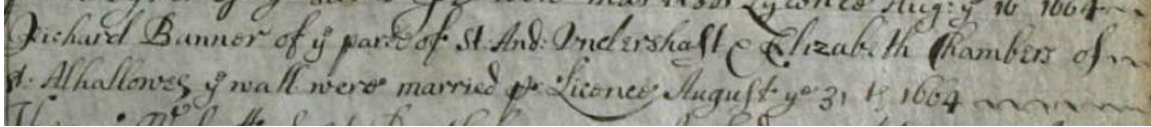 Lycence Aug: ye 16 1664
Richard Banner of ye parr of St. And: Vndershaft & Elizabeth Chambers of
st. Alhallowes ye wall were married pr Licence August ye 31 th 1664